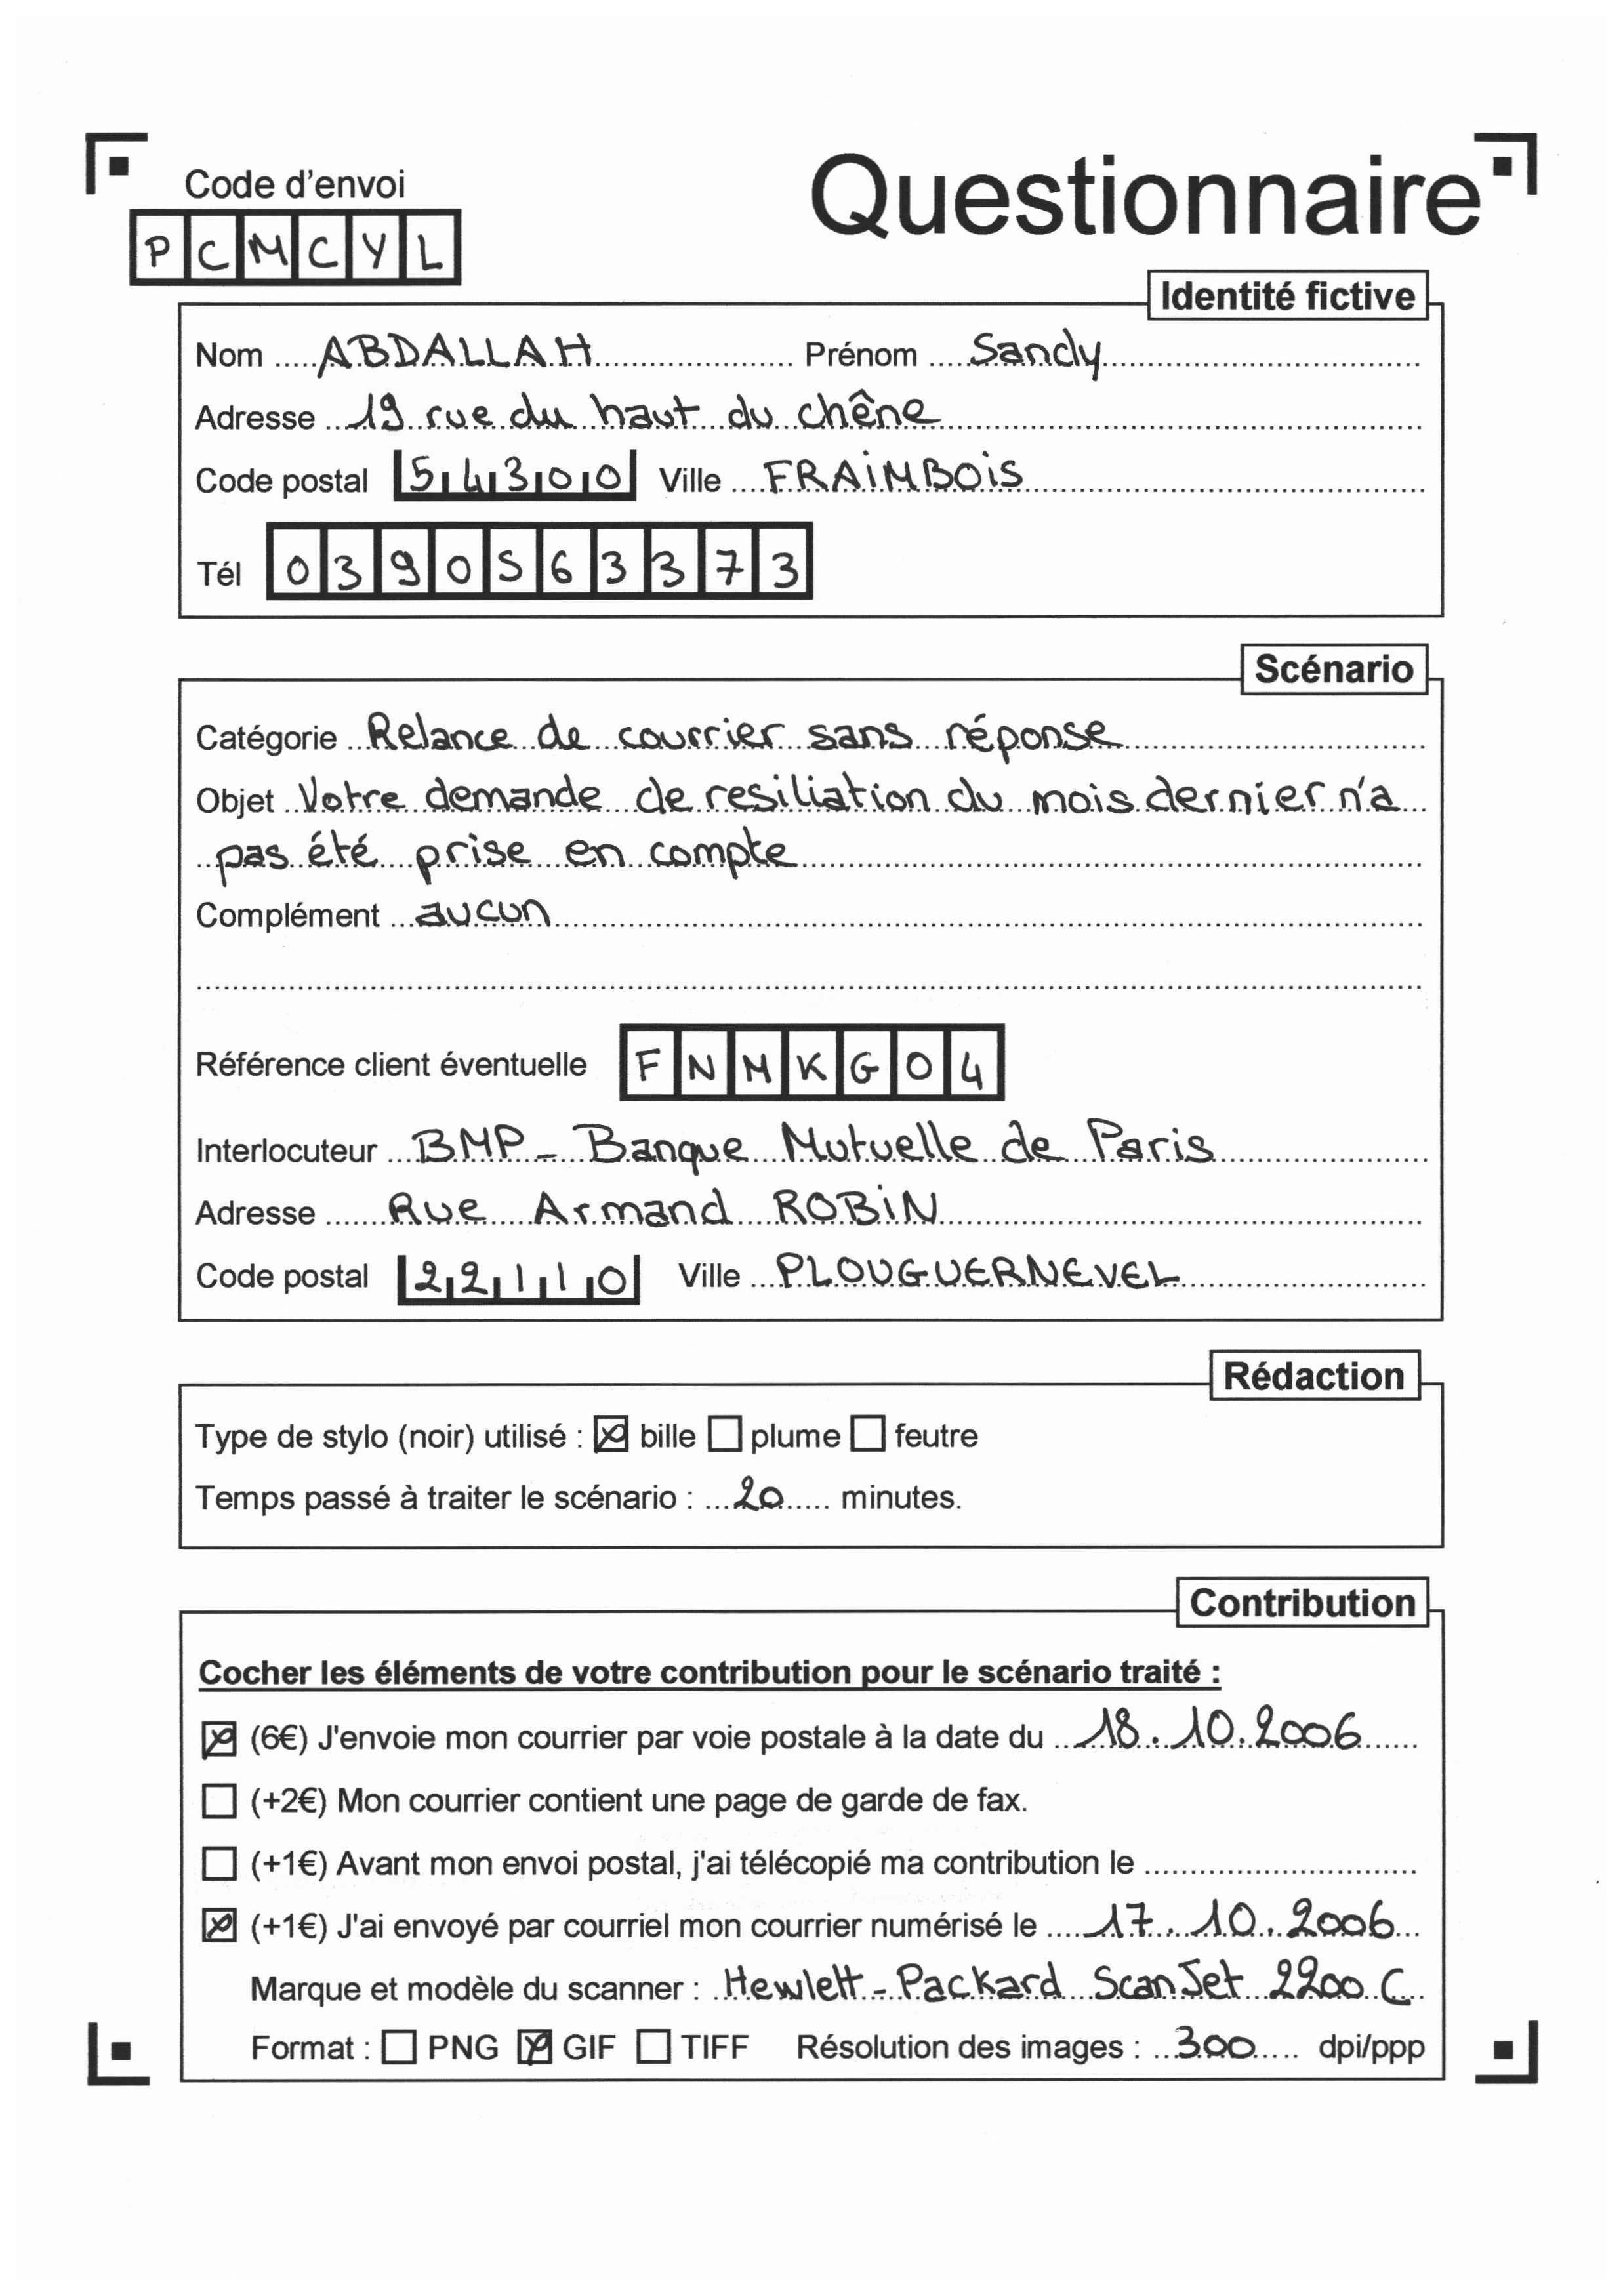 Code d'envoi
Questionnaire
PCMCYL
Identité fictive
Nom ABDALLAH Prénom Sandy
Adresse 19 rue du haut du chêne
Code postal 54300 Ville FRAiMBOiS
Tél 0390563373
Scénario
Catégorie Relance de courrier sans réponse
Objet Votre demande de resiliation du mois dernier n'a
pas été prise en compte
Complément aucun
Référence client éventuelle FNMKG04
Interlocuteur BMP - Banque Mutuelle de Paris
Adresse Rue Armand ROBiN
Code postal 22110 Ville PLOUGUERNEVEL
Rédaction
Type de stylo (noir) utilisé : ☒ bille ☐ plume ☐ feutre
Temps passé à traiter le scénario : 20 minutes.
Contribution
Cocher les éléments de votre contribution pour le scénario traité :
☒ (6€) J'envoie mon courrier par voie postale à la date du 18.10.2006
☐ (+2€) Mon courrier contient une page de garde de fax.
☐ (+1€) Avant mon envoi postal, j'ai télécopié ma contribution le
☒ (+1€) J'ai envoyé par courriel mon courrier numérisé le 17.10.2006
Marque et modèle du scanner : Hewlett-Packard ScanJet 2200 C
Format : ☐ PNG ☒ GIF ☐ TIFF Résolution des images : 300 dpi/ppp